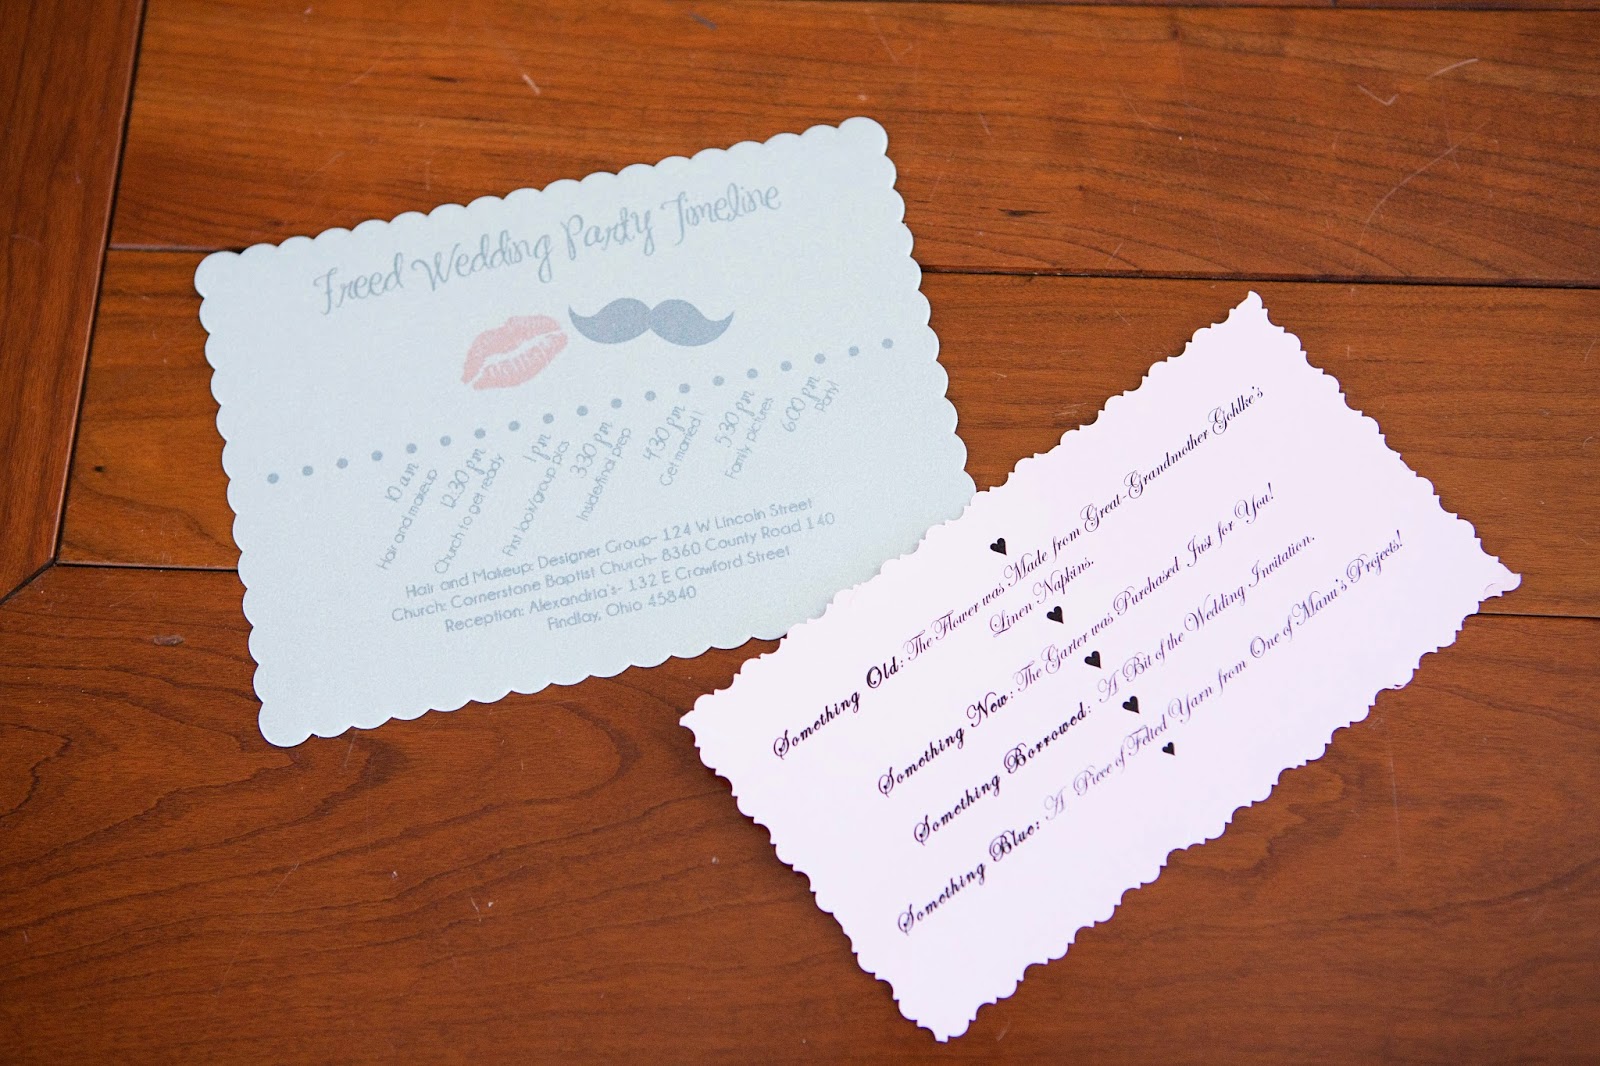 Freed Wedding Party Timeline
10 am
Hair and makeup
12:30 pm
Church to get ready
1 pm
First look/group pics
3:30 pm
Inside/final prep
4:30 pm
Get married!
5:30 pm
Family pictures
6:00 pm
Party!
Hair and Makeup: Designer Group- 124 W Lincoln Street
Church: Cornerstone Baptist Church- 8360 County Road 140
Reception: Alexandria's- 132 E Crawford Street
Findlay, Ohio 45840
Something Old: The Flower was Made from Great-Grandmother Gohlke's
Linen Napkins.
Something New: The Garter was Purchased Just for You!
Something Borrowed: A Bit of the Wedding Invitation.
Something Blue: A Piece of Felted Yarn from One of Manu's Projects!